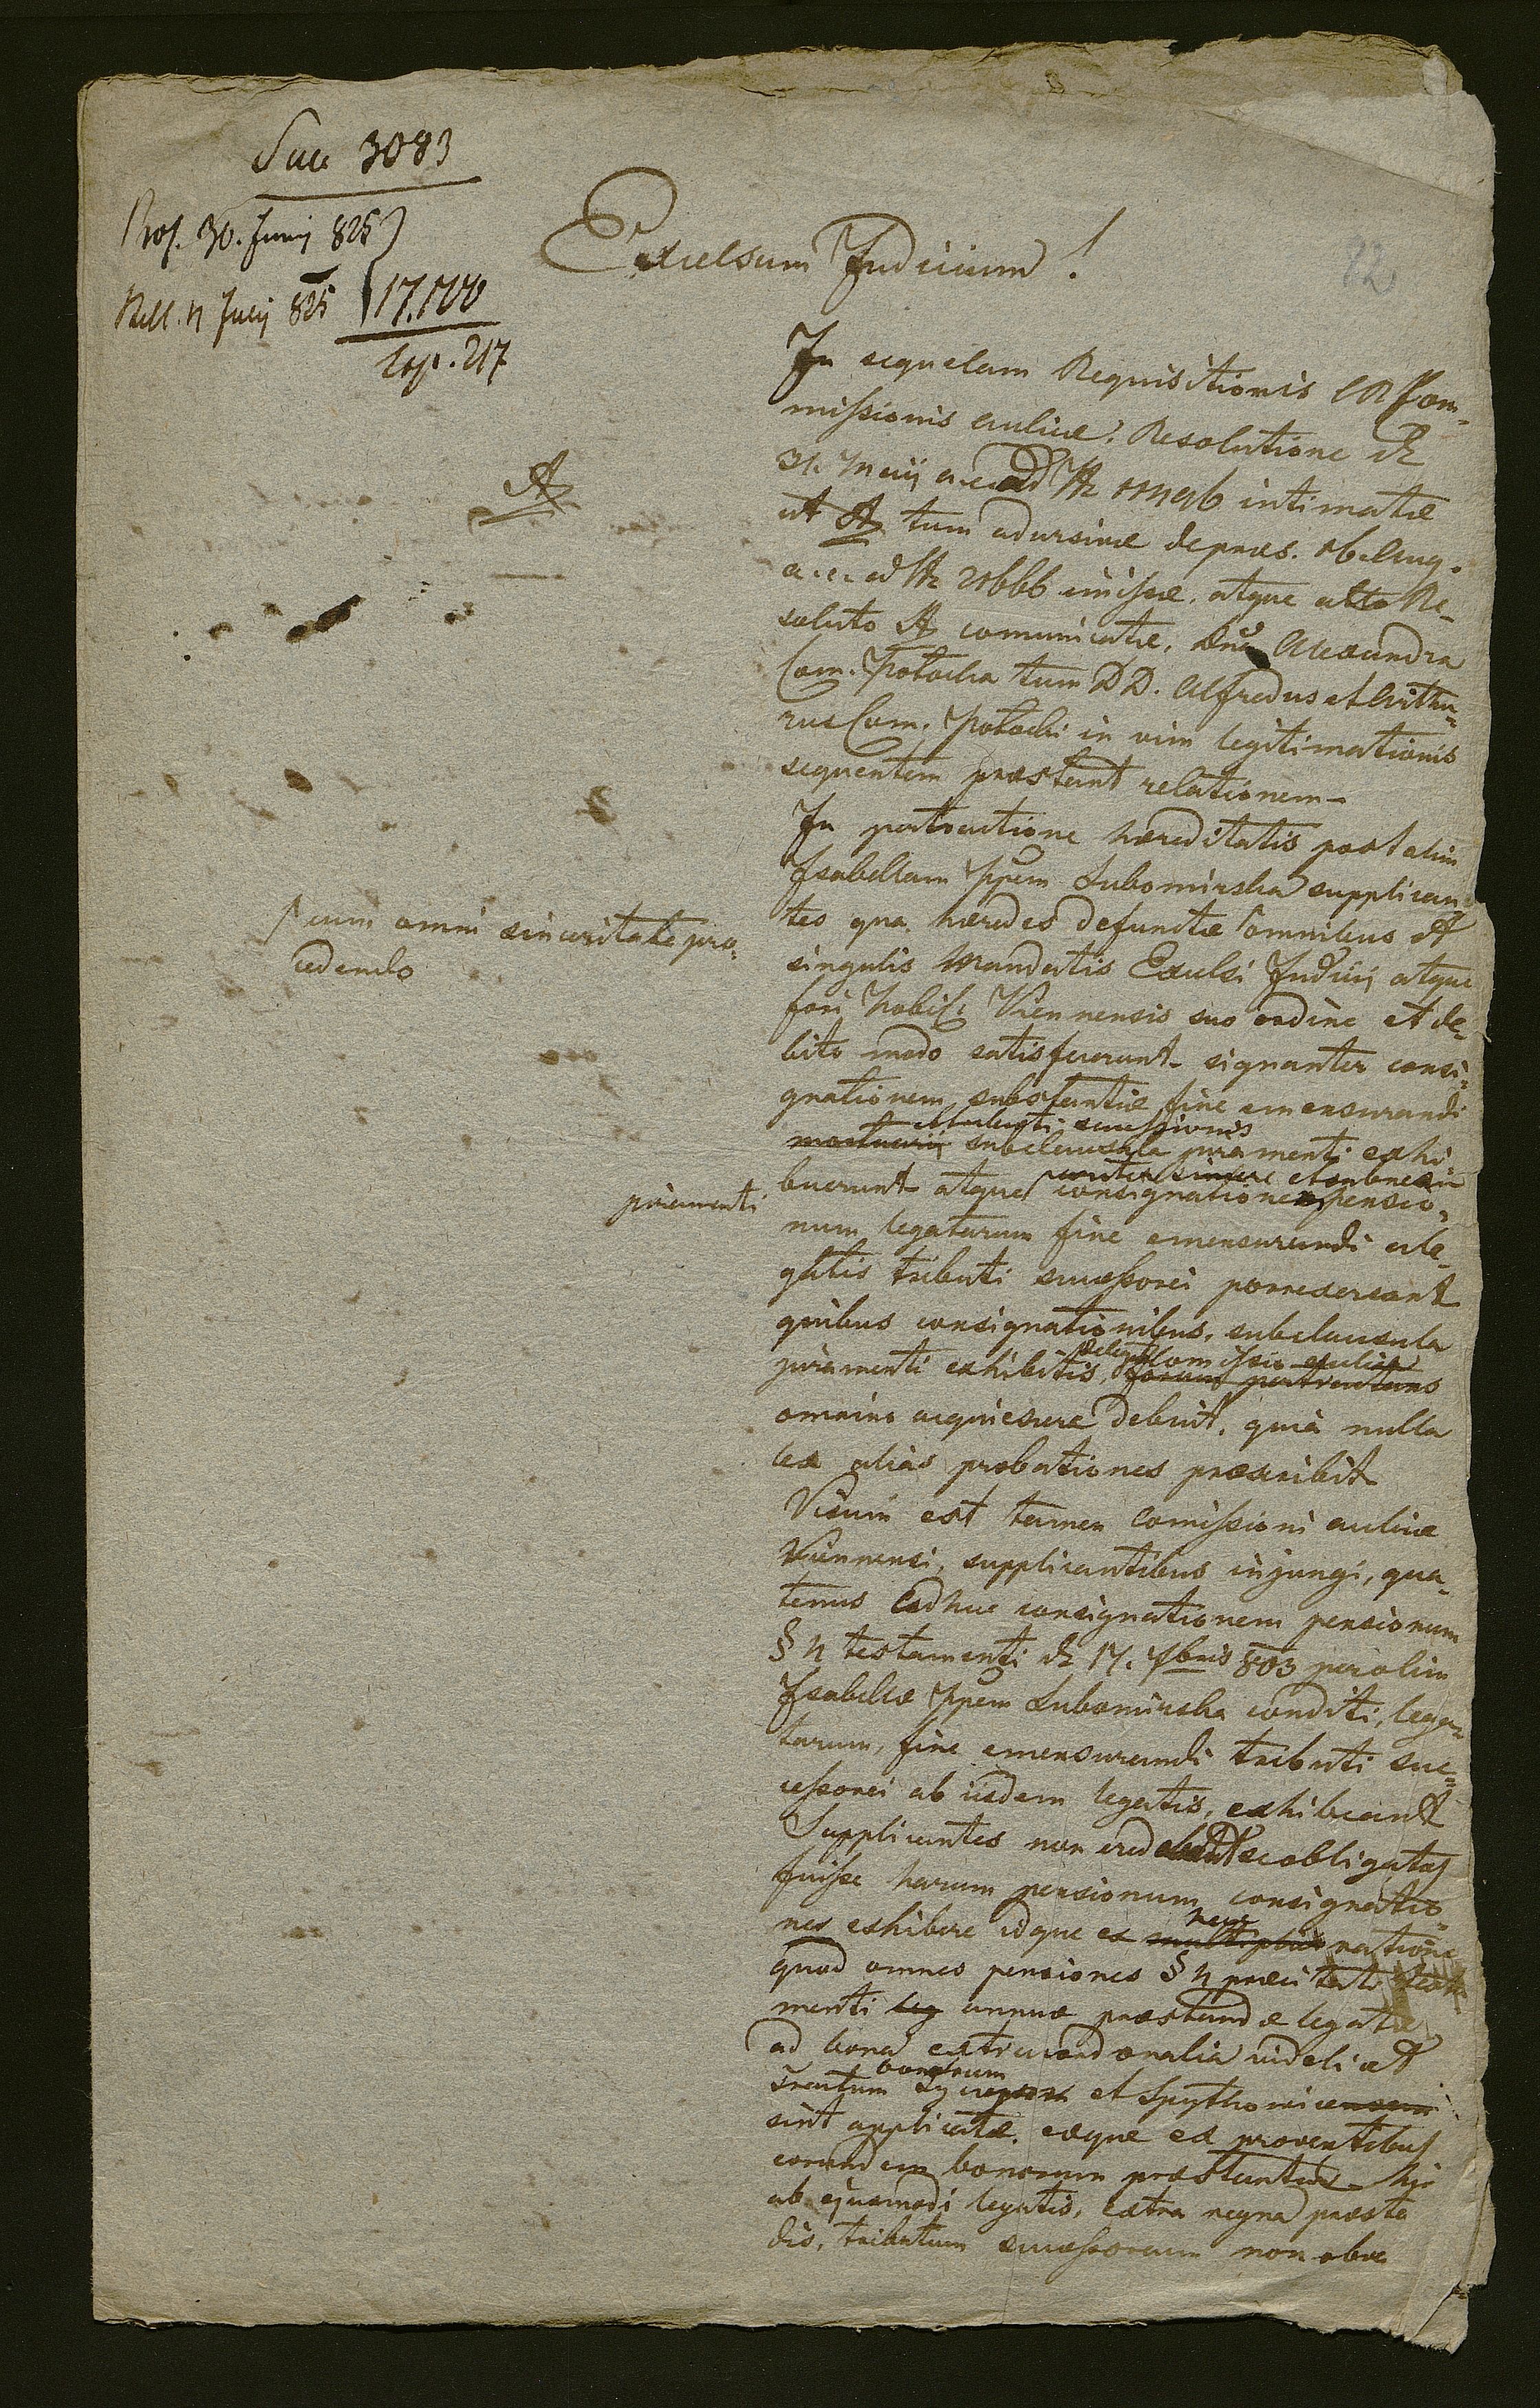 Suc 3083
Pros. 30. Junij 825
Rell. 4 July 825 17.100
Cop. 217
82
Excelsum Judicium!
In sequelam Requisitionis CR Com-
missionis aulicæ, Resolutione
31. Maij a. c. ad intimatæ
ut A tum adversivæ de præs. 16. Aug.
a. c. ad 21666 emissæ, atque
soluto A comunicatæ, Dna Alexandra
Com. Potocka tum DD. Alfredus et Arthu-
rus Com. Potocki in vim legitimationis
sequentem præstant relationem-
In pertractione hæreditatis post olim
Isabellam Ppem Lubomirska supplican-
tes qua hæredes defunctæ omnibus et
singulis Mandatis Excelsi Judicij atque
fori Nobil. Viennensis suo ordine et de-
bito modo satisfecerunt signanter consi-
gnationem substantiæ fine emensurandi
tributi successionis
mortuarij subclausula juramenti exhi
buerunt atque consignationem pensio-
num legatarum fine emensurandi a le-
gatis tributi successorei porrexerant
quibus consignationibus, subclausula
juramenti exhibitis, Comissio aulica
forum pertractans
omnino acquiescere debuit, quia nulla
lex alias probationes præscribit
Visum est tamen Comissioni aulicæ
Viennensi, supplicantibus injungi, qua-
tenus adhuc consignationem pensionum
§ 4 testamenti 17. 7bris 803 per olim
Isabellæ Ppem Lubomirska conditi, lega-
tarum, fine emensurandi tributi suc-
cessorei ab iisdem legatis, exhibeant
Supplicantes non se obligatos
fuisse harum pensionum consignatio-
nes exhibere idque ex ratione
quod omnes pensiones § 4 præcitati testa
menti leg annuæ præstandæ legatæ
ad bona extracordonalia videlicet
bonorum
et
sint applicatæ, eæque ex proventibus
eorundem bonorum præstantur
ab ejusmodi legatis, extra regna præsta
dis, tributum successoreum non obve
A
cum omni sinceritate pro-
cedendo
juramenti